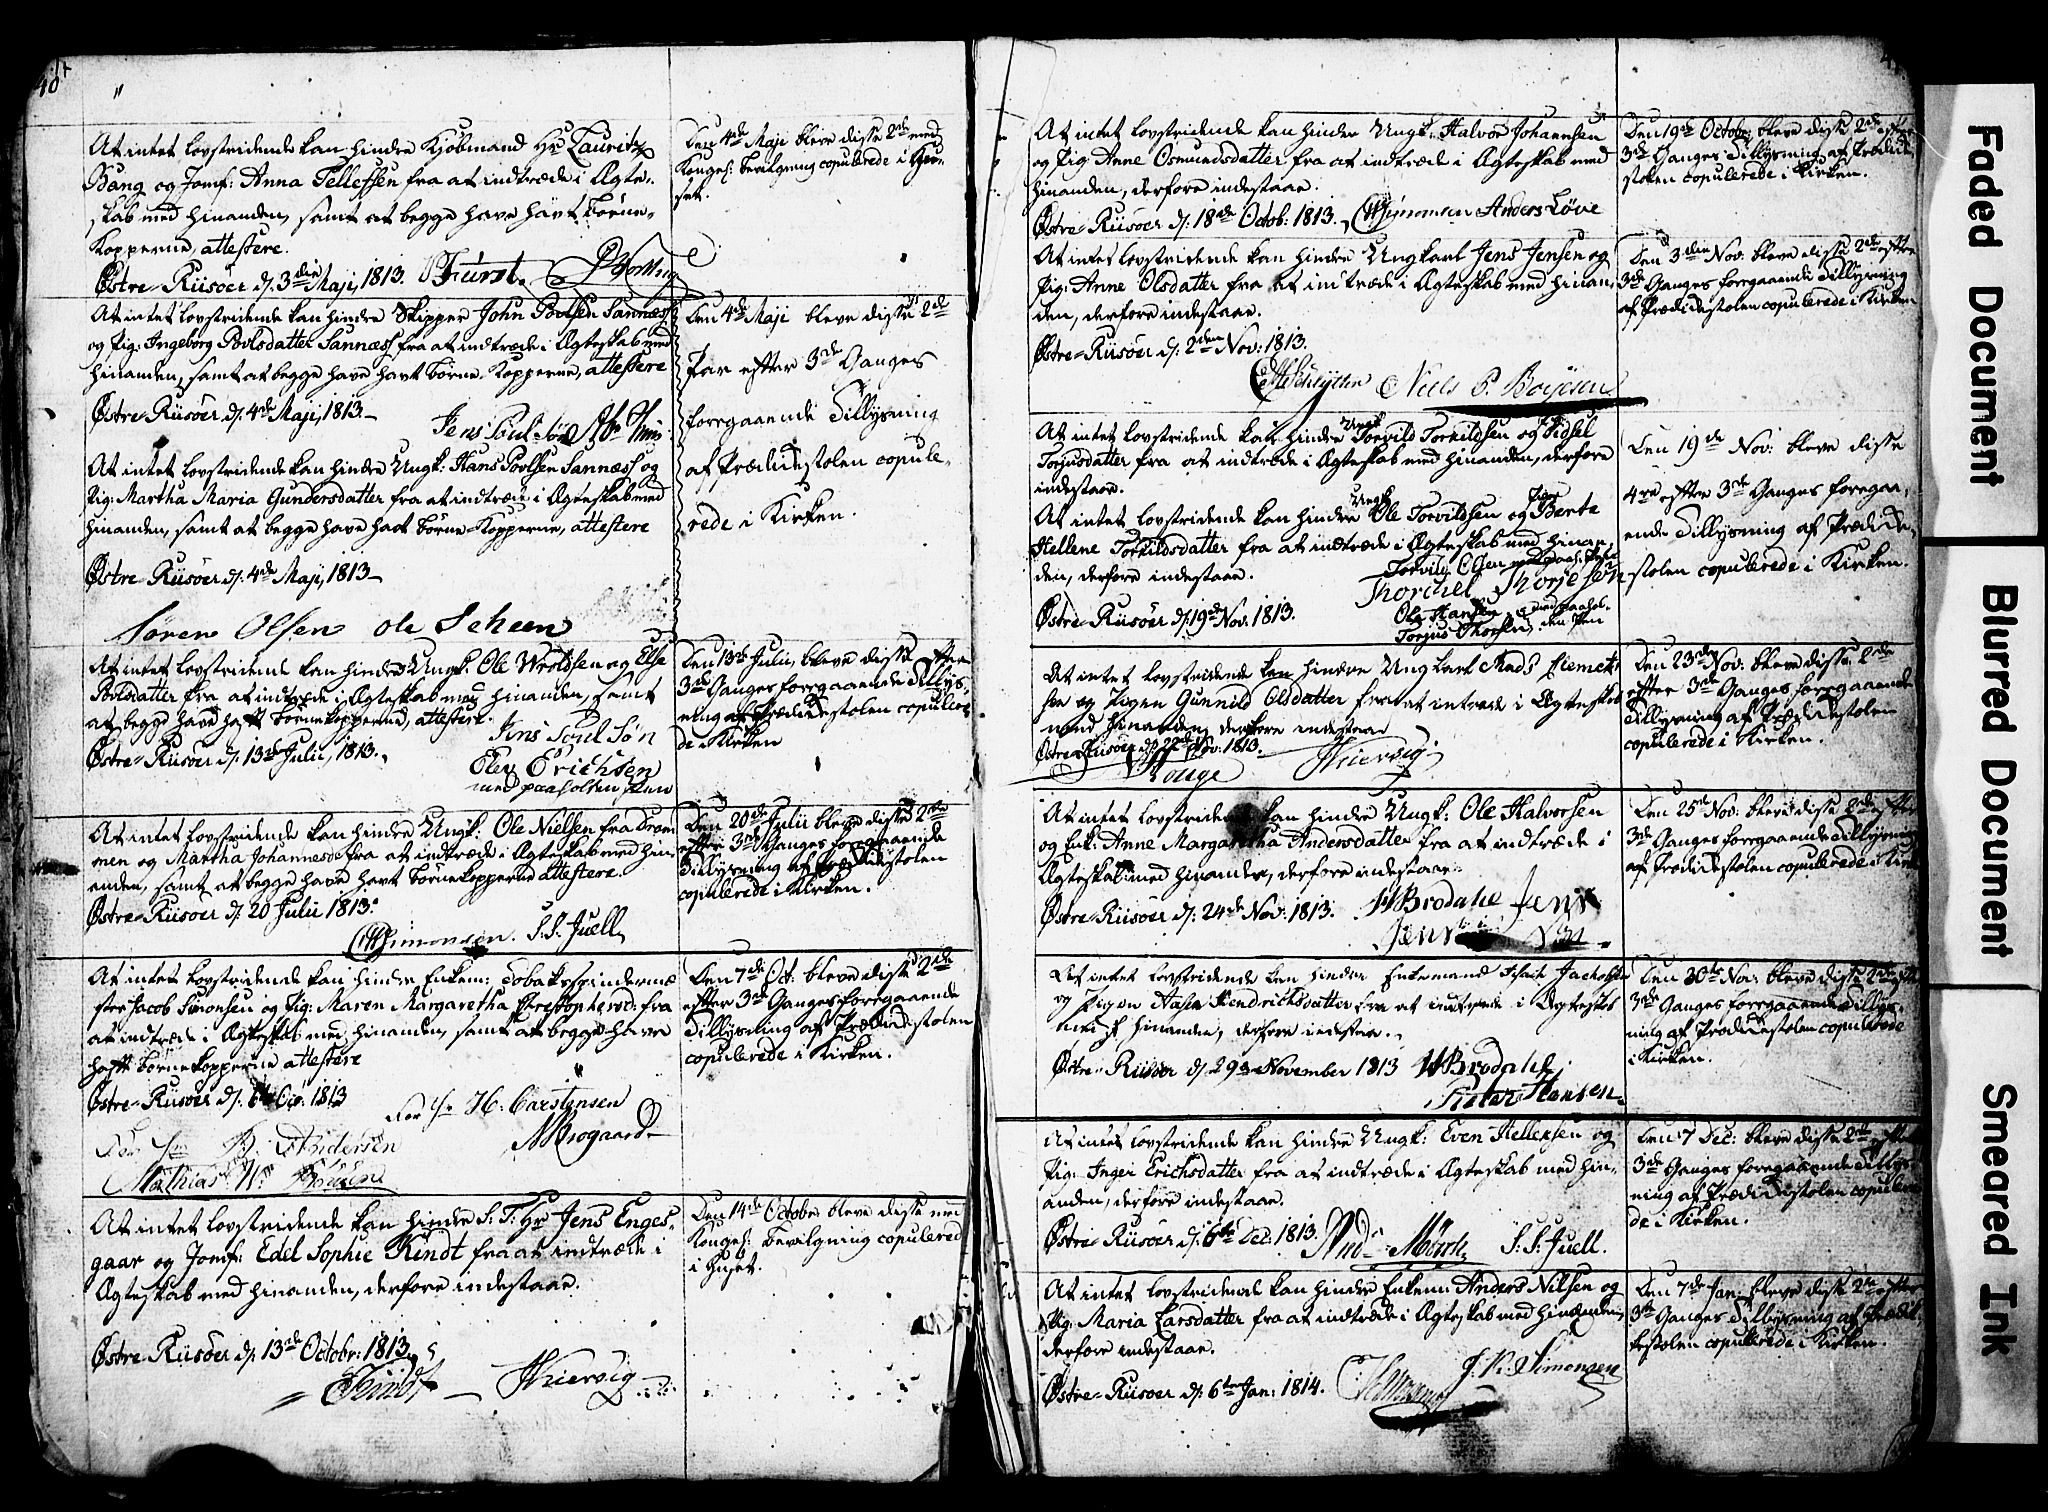 48
At intet lovstridende kan hindre Kjöbmand Hr Lauritz
Bang og Jomf: Anna Tellefsen fra at indtræde i Ægte-
skab med hinanden, samt at begge have havt Börne-
kopperne, attestere.
Østre-Riisöer d: 3die Maji, 1813. Fürst.
Den 4de Maji bleve disse 2de med
Kongel: bevilgning copulerede i Huu-
set.
At intet lovstridende kan hindre Skipper John Povlsen Sannæss
og Pig: Ingeborg Povlsdatter Sannæss fra at indtræde i Ægteskab med
hinanden, samt at begge have havt Börne-Kopperne, attestere
Østre-Riisöer d: 4de Maji, 1813.
Jens Poul Søn
Den 4de Maji bleve disse 2de
Par efter 3de Ganges
forregaaende Tillysning
af Prædikestolen copule-
rede i Kirken.
At intet lovstridende kan hindre Ungk: Hans Povlsen Sannæss og
Pig: Martha Maria Gundersdatter fra at indtræde i Ægteskab med
hinanden, samt at begge have havt Börne-Kopperne, attestere
Østre-Riisöer d: 4de Maji, 1813
Sören Olsen ole Scheen
At intet lovstridende kan hindre Ungk: Ole Wroldsen og Else
Povlsdatter fra at indtræde i Ægteskab med hinanden, samt
at begge have haft Börnekopperne, attestere.
Østre-Riisöer d: 13de Julii, 1813.
Jens Poul Søn
Elev Erichsen
med paaholden Pen
Den 13de Julii, bleve disse efter
3de Ganges forregaaende Tillys-
ning af Prædikestolen copulere-
de i Kirken
At intet lovstridende kan hindre Ungk: Ole Nielsen fra Dram
men og Martha Johannesd: fra at indtræde i Ægteskab med hin
anden, samt at begge have havt Börnekopperne attestere.
Østre-Riisöer d: 20 Julii 1813.
Simonsen. S. S. Juell
Den 20de Julii bleve disse 2de
efter 3de Ganges forregaaende
Tillysning af Prædikestolen
copulerede i Kirken.
At intet lovstridende kan hindre Enkem: Tobaksspinderme
ster Jacob Simonsen og Pig: Maren Margaretha Christophersd: fra
at indtræde i Ægteskab med hinanden, samt at begge have
haft Börnekopperne attestere
Østre-Riisöer d: 6te Oct: 1813
H. Carstensen
Andersen
Mathias
Den 7de Oct: bleve disse 2de
efter 3de Ganges forregaaende
Tillysning af Prædikestolen
copulerede i Kirken.
At intet lovstridende kan hindre S: T: Hr Jens Enges-
gaar og Jomf: Edel Sophie Kindt fra at indtræde i
Ægteskab med hinanden, derfore indestaar.
Østre-Riisöer d: 13de Octobr: 1813.
Kindt Kiervig
Den 14de Octobr bleve disse med
Kongel: Bevilgning copulered
i Huset.
At intet lovstridende kan hindre Ungk: Halvor Johannsen
og Pig: Anne Osmundsdatter fra at indtræde i Ægteskab med
hinanden, derfore indestaae.
Østre-Riisöer d: 18de Octob: 1813. Simonsen Anders Löve
Den 19de Octobr bleve disse 2de efter
3de Ganges Tillysning af Prædike
stolen copulerede i Kirken.
At intet lovstridende kan hindre Ungkarl Jens Jensen og
Pig: Anne Olsdatter fra at indtræde i Ægteskab med hinan-
den, derfore indestaae.
Østre-Riisöer d: 2den Nov: 1813.
Niels P. Boyesen
Den 3die Nov: bleve disse 2de efter
3de Ganges forregaaende Tillysning
af Prædikestolen copulerede i Kirken
At intet lovstridende kan hindre Ungk Torvild Torkildsen og Sidsel
Torjusdatter fra at indtræde i Ægteskab med hinanden, derfore
indestaae.
At intet lovstridende kan hindre Ungk Ole Torvildsen og Pigen Berte
Hellene Torkildsdatter fra at indtræde i Ægteskab med hinan-
den, derfore indestaae.
Østre-Riisöer d: 19de Nov: 1813.
Torvild Olsen
Thorchel Thorjesen
Ole Hansen med paahol-
Torjus Thorsen den Pen
Den 19de Nov: bleve disse
4re efter 3de Ganges foregaa-
ende Tillysning af Prædike-
stolen copulerede i Kirken.
At intet lovstridende kan hindre Ungkarl Mads Clemet-
sen og Pigen Gunnild Olsdatter fra at intræde i Ægteskab
med hinanden derfore indestaar
Østre Riisöer d: 22de Nov: 1813.
Kiervig
Den 23de Nov: bleve disse 2de
efter 3de Ganges forregaaende
Tillysning af Prædikestolen
copulerede i Kirken.
At intet lovstridende kan hindre Ungk: Ole Halvorsen
og Enk: Anne Margaretha Andersdatter fra at indtræde i
Ægteskab med hinanden, derfore indestaae.
Østre-Riisöer d: 24de Nov: 1813. Brodahl Jens
Jens
Den 25de Nov: bleve disse 2de efter
3de Ganges forregaaende Tillysning
af Prædikestolen copulerede i Kirk
At intet lovstridende kan hindre Enkemand Isach Jacobsen
og Pigen Aase Hendrichsdatter fra at indtræde i Ægteskab
med hinanden, derfore indestaar.
Østre-Riisöer d: 29de November 1813 Brodahl
Peter Hansen
Den 30te Nov: bleve disse 2de efter
3de Ganges forregaaende Tillys-
ning af Prædikestolen copulerede
i Kirken.
At intet lovstridende kan hindre Ungk: Even Hellersen og
Pig: Inger Erichsdatter fra at indtræde i Ægteskab med hin-
anden, derfore indestaae.
Østre-Riisöer d: 6te Dec: 1813. S. S. Juell.
Den 7 Dec: bleve disse 2de efter
3de Ganges forregaaende Tillys
ning af Prædikestolen copulere
de i Kirken.
At intet lovstridende kan hindre Enkem: Anders Nilsen og
Pig: Maria Larsdatter fra at indtræde i Ægteskab med hinanden
derfore indestaae.
Østre-Riisöer d: 6te Jan: 1814. J. K. Simonsen
Den 7de Jan: bleve disse 2de efter
3de Ganges Tillysning af Prædi-
kestolen copulerede i Kirken.
Faded Document
Blurred Document
Smeared Ink